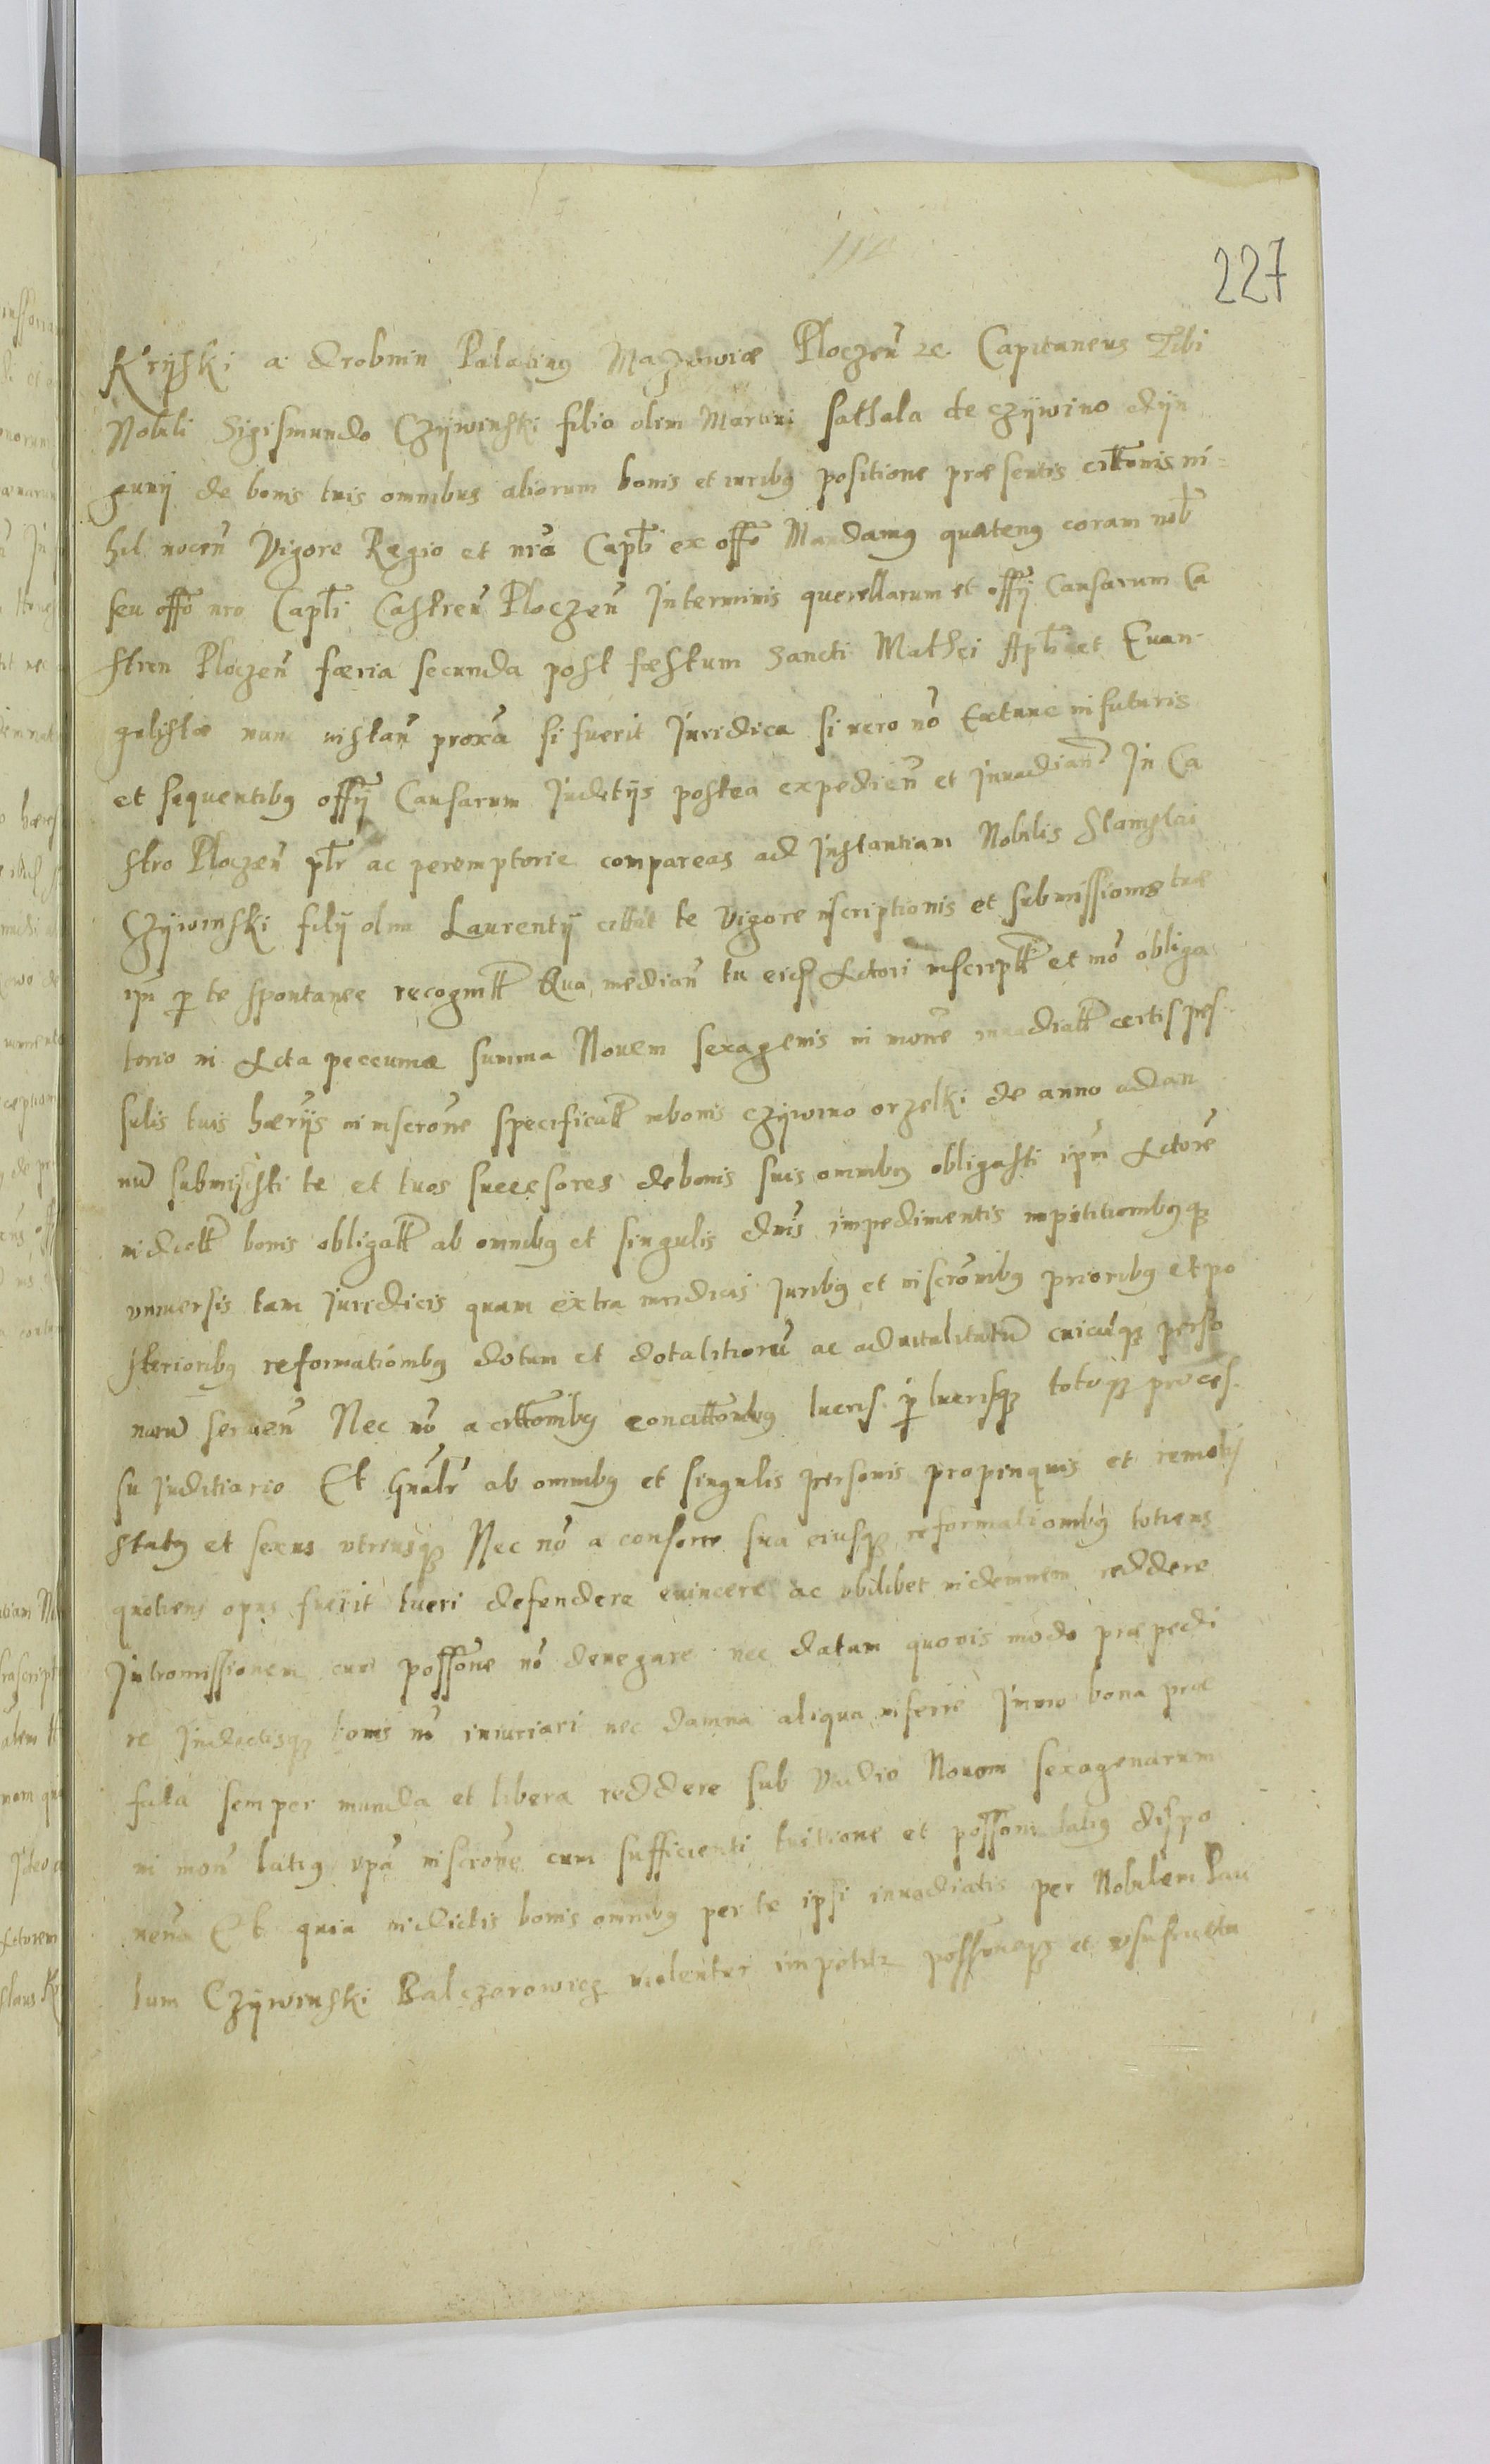 227
Kryski a Drobnin Palatinus Mazowiæ Ploczeñ 2c. Capitaneus Tibi
Nobili Sigismundo Czÿwinski filio olim Martini sathala de czÿwino dÿn
gunÿ de bonis tuis omnibus aliorum bonis et iuribus positione præsentis citõnis ni=
hil nocen̄ Vigore Regio et nr̃a Capłi ex offõ Mandamus quatenus coram nob̃
seu offõ nr̃o Capłi Castren̄ Ploczen̄ In terminis querellarum et offÿ Causarum Ca
stren Ploczen̄ færia secunda post fæstum Sancti Mathei Apłi et Euan-
gelistæ nunc instan̄ proxã si fuerit Iuridica si uero nõ Extunc in futuris
et sequentibus offÿ Causarum Iuditÿs postea expedien̄ et Inuadian̄ In Ca
stro Ploczen̄ pt̃r ac peremptorie compareas ad Instantiam Nobilis Stanislai
Czÿwinski filÿ olim Laurentÿ citat te Vigore inscriptionis et submissionis tuæ
ipi per te spontanee recognitt Qua median̄ tu eid Actori inscriptt et mõ obliga
torio in Acta peccuniæ summa Nouem sexagenis in monẽ inuadiatt certis pes-
sulis tuis hærÿs in inscrõne specificatt in bonis czÿwino orzelki de anno ad an
nũ submisisti te et tuos successores de bonis suis omnibus obligasti ipm̃ Actorẽ
in dictt bonis obligatt ab omnibus et singulis dnis impedimentis inpititiombusqȝ
vniuersis tam Iuridicis quam extra iuridicis Iuribus et inscrõnibus prioribus et po
sterioribus reformatiombus dotum et dotalitiorũ ac aduitalitatũ cuicũqȝ perso
narũ seruen̄ Nec nõ a cittõnibus concittõnibus lucris perlucrisqȝ totoqȝ proces-
su Juditiario Et gñalr ab omnibus et singulis personis propinquis et remotÿ
status et sexus vtriusqȝ Nec nõ a consorte sua eiusqȝ reformatiombus totiens
quotiens opus fuerit tueri defendere euincere ac vbilibet indemnem reddere
Intromissionem cum possõne nõ denegare nec datam quouis modo præpedi
re Indictisqȝ bonis nõ iniuriari nec damna aliqua inferre Immo bona præ
fata semper munda et libera reddere sub Vadio Nouem sexagenarum
in mon̄ latius ipã inscrõne cum sufficienti tuitione et possõni latius dispo
nen̄ Et quia in dictis bonis omnibus per te ipsi inuadiatis per Nobilem Pau
lum Czÿwinski Balczerowicz uiolenter impetitr possõneqȝ et vsufructu